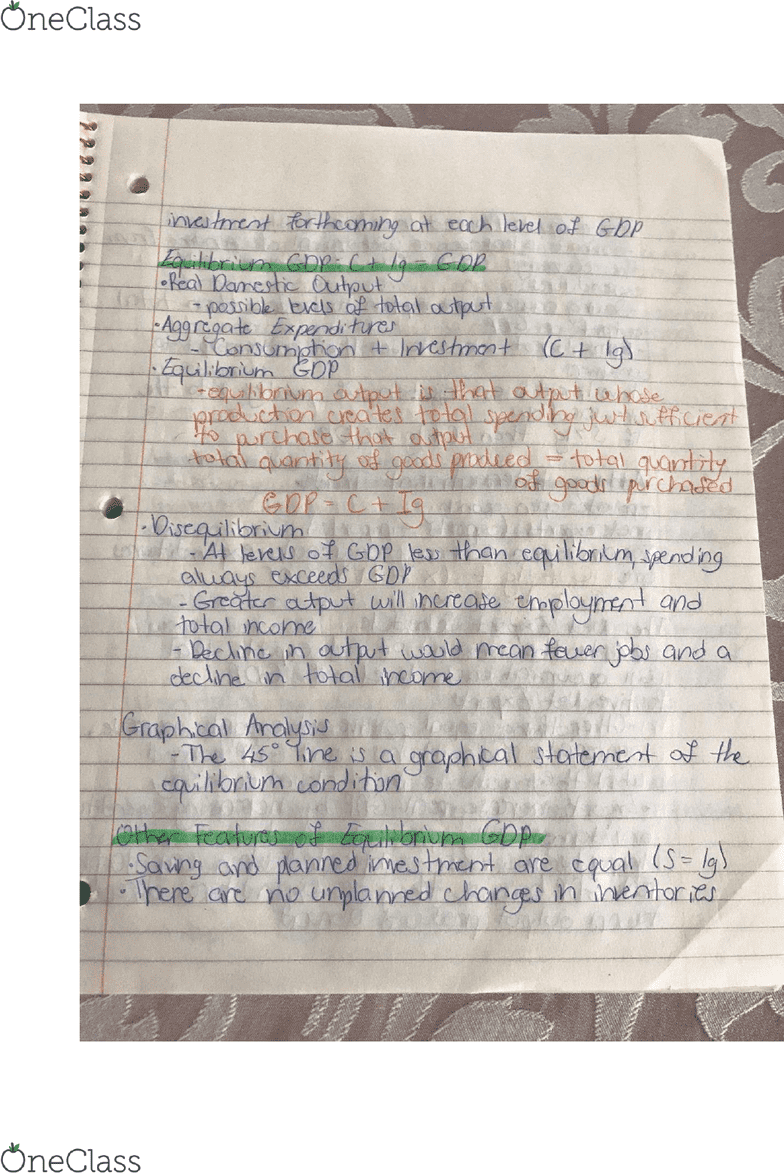 OneClass
investment forthcoming at each level of GDP
Equilibrium GDP: C + Ig = GDP
• Real Domestic Output
- possible levels of total output
• Aggregate Expenditures
- Consumption + Investment (C + Ig)
• Equilibrium GDP
- equilibrium output is that output whose
production creates total spending just sufficient
to purchase that output
total quantity of goods produced = total quantity
of goods purchased
GDP = C + Ig
• Disequilibrium
- At levels of GDP less than equilibrium, spending
always exceeds GDP
- Greater output will increase employment and
total income
- Decline in output would mean fewer jobs and a
decline in total income
Graphical Analysis
- The 45° line is a graphical statement of the
equilibrium condition
Other Features of Equilibrium GDP
• Saving and planned investment are equal (S = Ig)
• There are no unplanned changes in inventories
OneClass